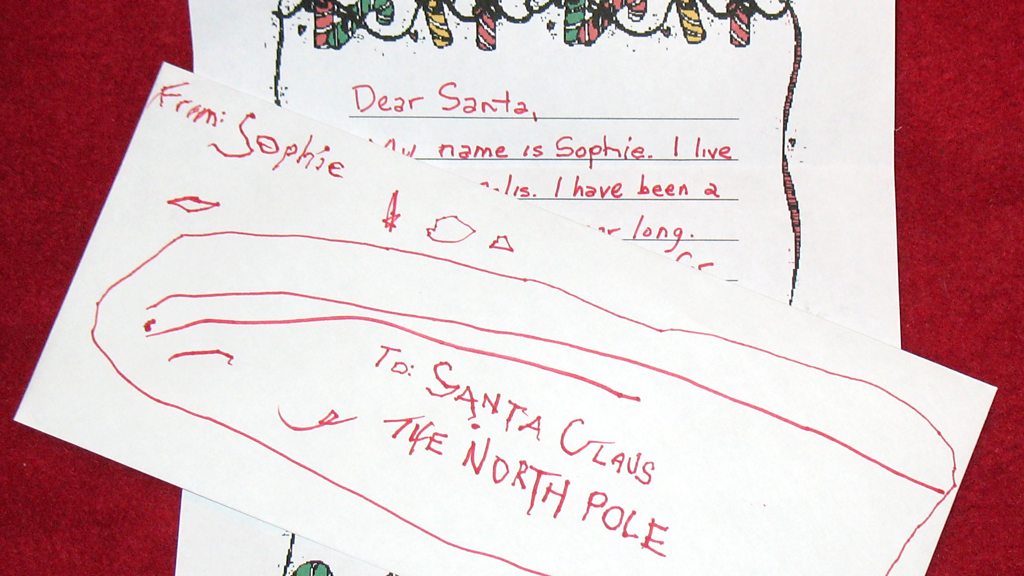 Dear Santa,
My name is Sophie. I live
I have been a
long.
From: Sophie
To: SANTA CLAUS
THE NORTH POLE